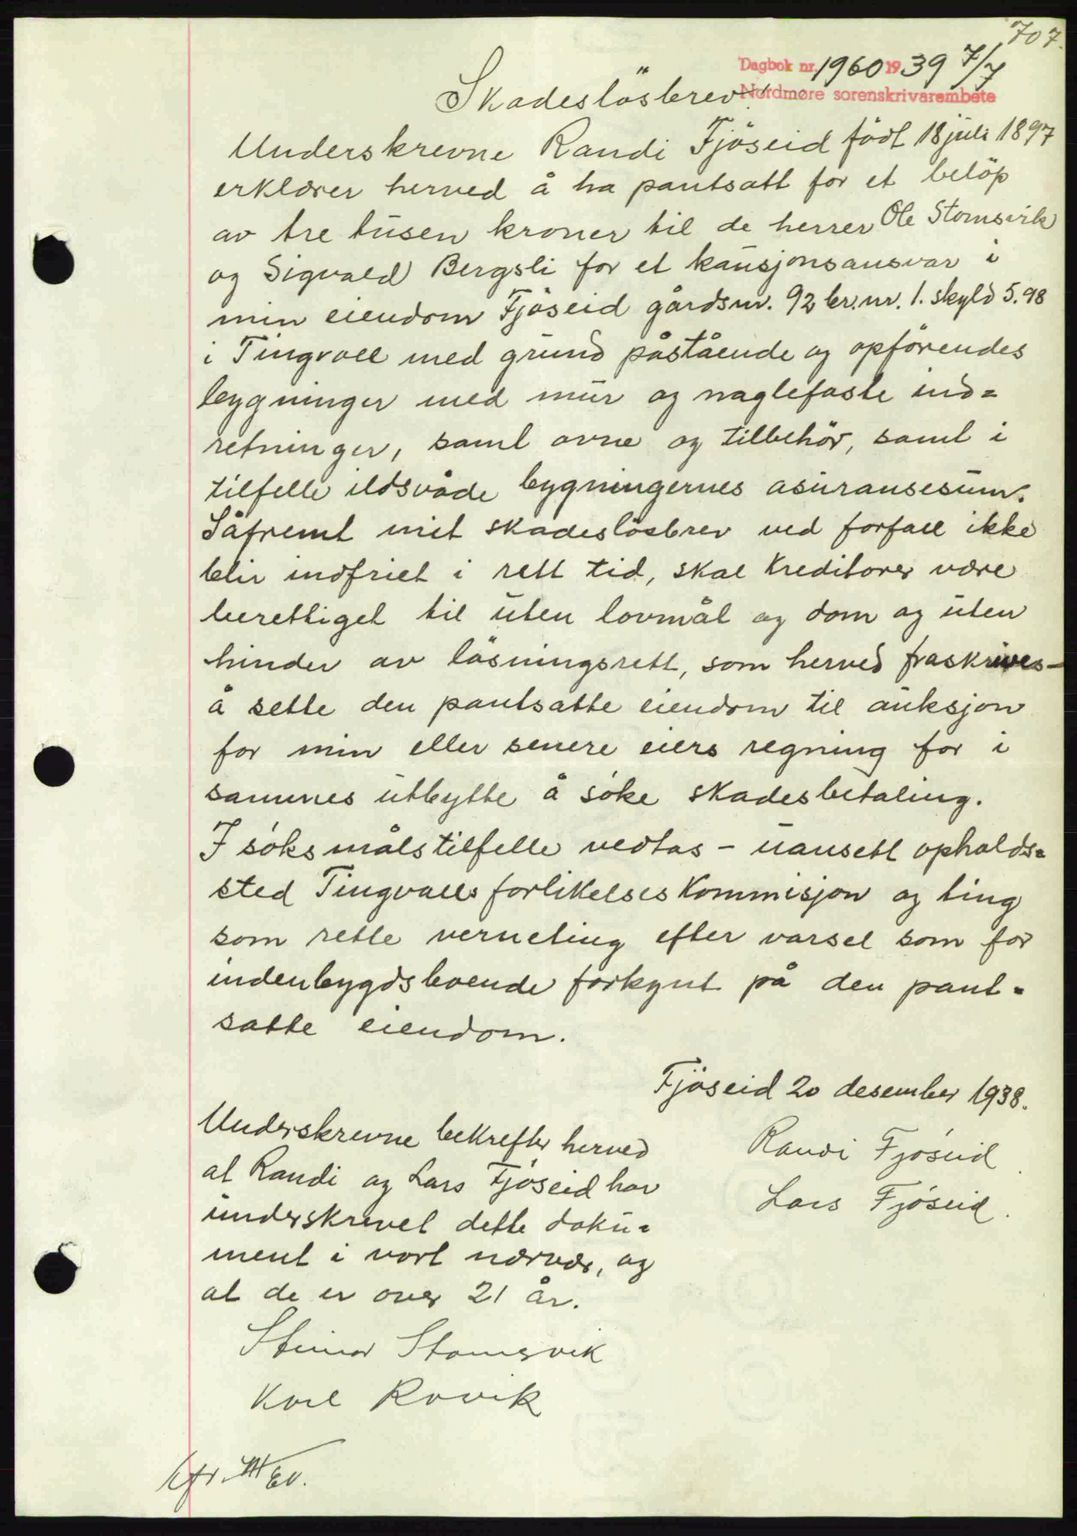 707.
Dagbok nr. 1960 1939 7/7
Nordmøre sorenskrivarembete
Skadeslösbrev.
Underskrevne Randi Fjöseid födt 18 juli 1897
erklærer herved å ha pantsatt for et belöp
av tre tusen kroner til de herrer Ole Stomsvik
og Sigvald Bergsli for et kausjonsansvar i
min eiendom Fjöseid gårdsnr. 92 br.nr. 1. skyld 5.98
i Tingvoll med grund påstående og opförendes
bygninger med mur og naglefaste ind=
retninger, samt ovne og tilbehör, samt i
tilfelle ildsvåde bygningernes asuransesum.
Såfremt mit skadeslösbrev ved forfall ikke
blir indfriet i rett tid, skal kreditorer være
berettiget til uten lovmål og dom og uten
hinder av läsningsrett, som herved fraskrives –
å sette den pantsatte eiendom til auksjon
for min eller senere eiers regning for i
sammes utbytte å söke skadesbetaling.
I söksmålstilfelle vedtas – uansett opholds=
sted Tingvolls forlikelses kommisjon og ting
som rette verneting efter varsel som for
indenbygdsboende forkynt på den pant=
satte eiendom.
Fjöseid 20 desember 1938.
Randi Fjöseid.
Lars Fjöseid.
Underskrevne bekrefter herved
at Randi og Lars Fjöseid har
underskrevet dette doku=
ment i vort nærvær, og
at de er over 21 år.
Steinar Stomsvik
Karl Rovik